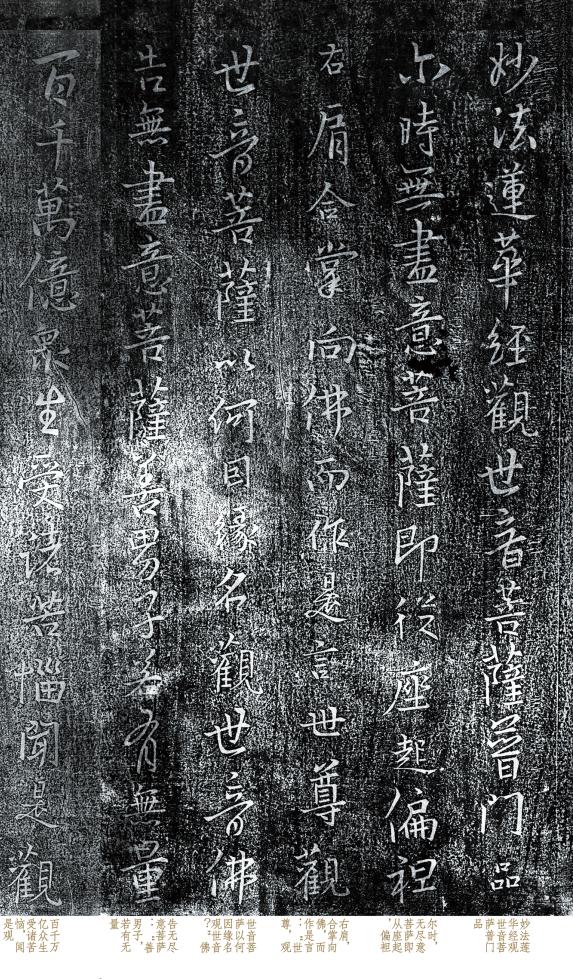 妙法蓮華經觀世音菩薩普門品
尒時無盡意菩薩即從座起偏袒
右肩合掌向佛而作是言世尊觀
世音菩薩以何因緣名觀世音佛
告無盡意菩薩善男子若有無量
百千萬億衆生受諸苦惱聞是觀
妙法莲华经观世音菩萨普门品
尔时，无尽意菩萨即从座起，偏袒
右肩，合掌向佛，而作是言：世尊，观
世音菩萨以何因缘名观世音？佛
告无尽意菩萨：善男子，若有无量
百千万亿众生受诸苦恼，闻是观